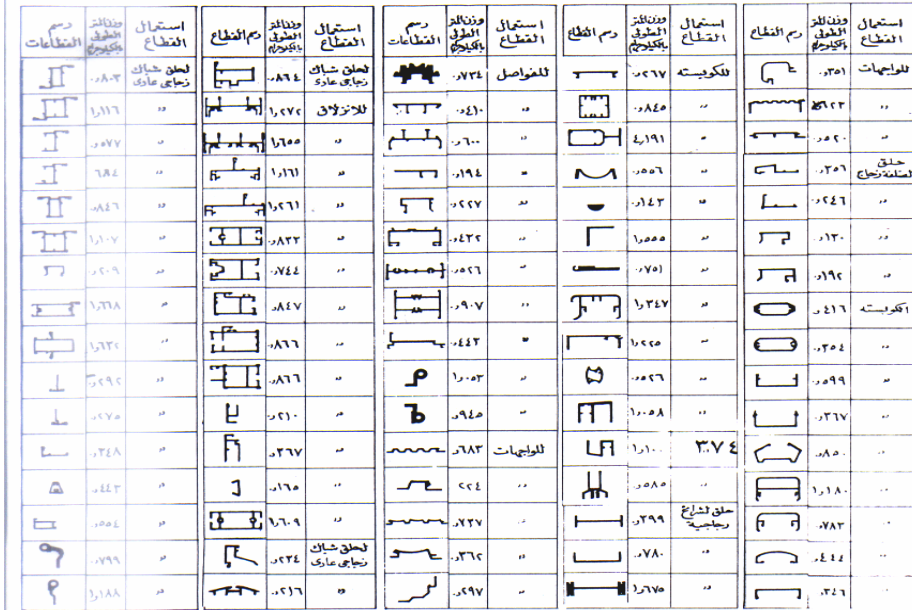 استعمال القطاع
وزن المتر الطولى بالكيلوجرام
رسم القطاع
للواجهات ٣٥١و.
" ٦٢٣و.
" ٥٢٠و.
حلق لضلفة زجاج ٣٥٦و.
" ٢٤٦و.
" ١٣٠و.
" ١٩٢و.
الكوبسته ٤١٦و.
" ٣٥٤و.
" ٥٩٩و.
" ٣٦٧و.
" ٨٥٠و.
" ١٨٠و١
" ٧٨٣و.
" ٤٤٤و.
" ٣٤٦و.
استعمال القطاع
وزن المتر الطولى بالكيلوجرام
رسم القطاع
للكوبسته ٢٦٧و.
" ٨٤٥و.
" ١٩١و٤
" ٥٥٦و.
" ١٤٣و.
" ٥٥٥و١
" ٧٥١و.
" ٣٤٧و١
" ٢٢٥و١
" ٥٢٦و.
" ٠٥٨و١
٣٧٤ ١٠٠و١
" ٥٨٥و.
حلق لشرائح زجاجية ٣٩٩و.
" ٧٨٠و.
" ٦٧٥و١
استعمال القطاع
وزن المتر الطولى بالكيلوجرام
رسم القطاعات
للفواصل ٧٣٤و.
" ٤١٠و.
" ٦٠٠و.
" ١٩٤و.
" ٢٢٧و.
" ٤٣٢و.
" ٥٢٦و.
" ٩٠٧و.
" ٤٤٣و.
" ٠٥٣و١
" ٩٤٥و.
للواجهات ٦٨٣و.
" ٢٢٤
" ٧٣٧و.
" ٣٦٢و.
" ٢٩٧و.
استعمال القطاع
وزن المتر الطولى بالكيلوجرام
رسم القطاع
لحلق شباك زجاجى عادى ٨٦٤و.
للانزلاق ٢٧٢و١
" ٦٥٥و١
" ١٦١و١
" ٢٦١و١
" ٨٣٣و.
" ٧٤٤و.
" ٨٤٧و.
" ٨٦٦و.
" ٨٦٦و.
" ٢١٠و.
" ٣٦٧و.
" ١٦٥و.
" ٦٠٩و١
لحلق شباك زجاجى عادى ٢٣٤و.
" ٢١٦و.
استعمال القطاع
وزن المتر الطولى بالكيلوجرام
رسم القطاعات
لحلق شباك زجاجى عادى ٨٠٣و.
" ١١٦و١
" ٥٧٧و.
" ٦٨٤
" ٨٤٦و.
" ١٠٧و١
" ٢٠٩و.
" ٦٦٨و١
" ٦٣٢و١
" ٢٩٢و.
" ٢٧٥و.
" ٣٤٨و.
" ٤٤٣و.
" ٥٥٤و.
" ٧٩٩و.
" ١٨٨و١